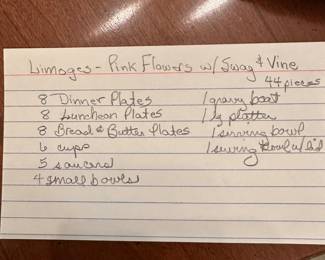 Limoges - Pink Flowers w/ Swag & Vine
44 pieces
8 Dinner Plates
8 Luncheon Plates
8 Bread & Butter Plates
6 cups
5 saucers
4 small bowls
1 gravy boat
1 lg platter
1 serving bowl
1 serving bowl w/ lid